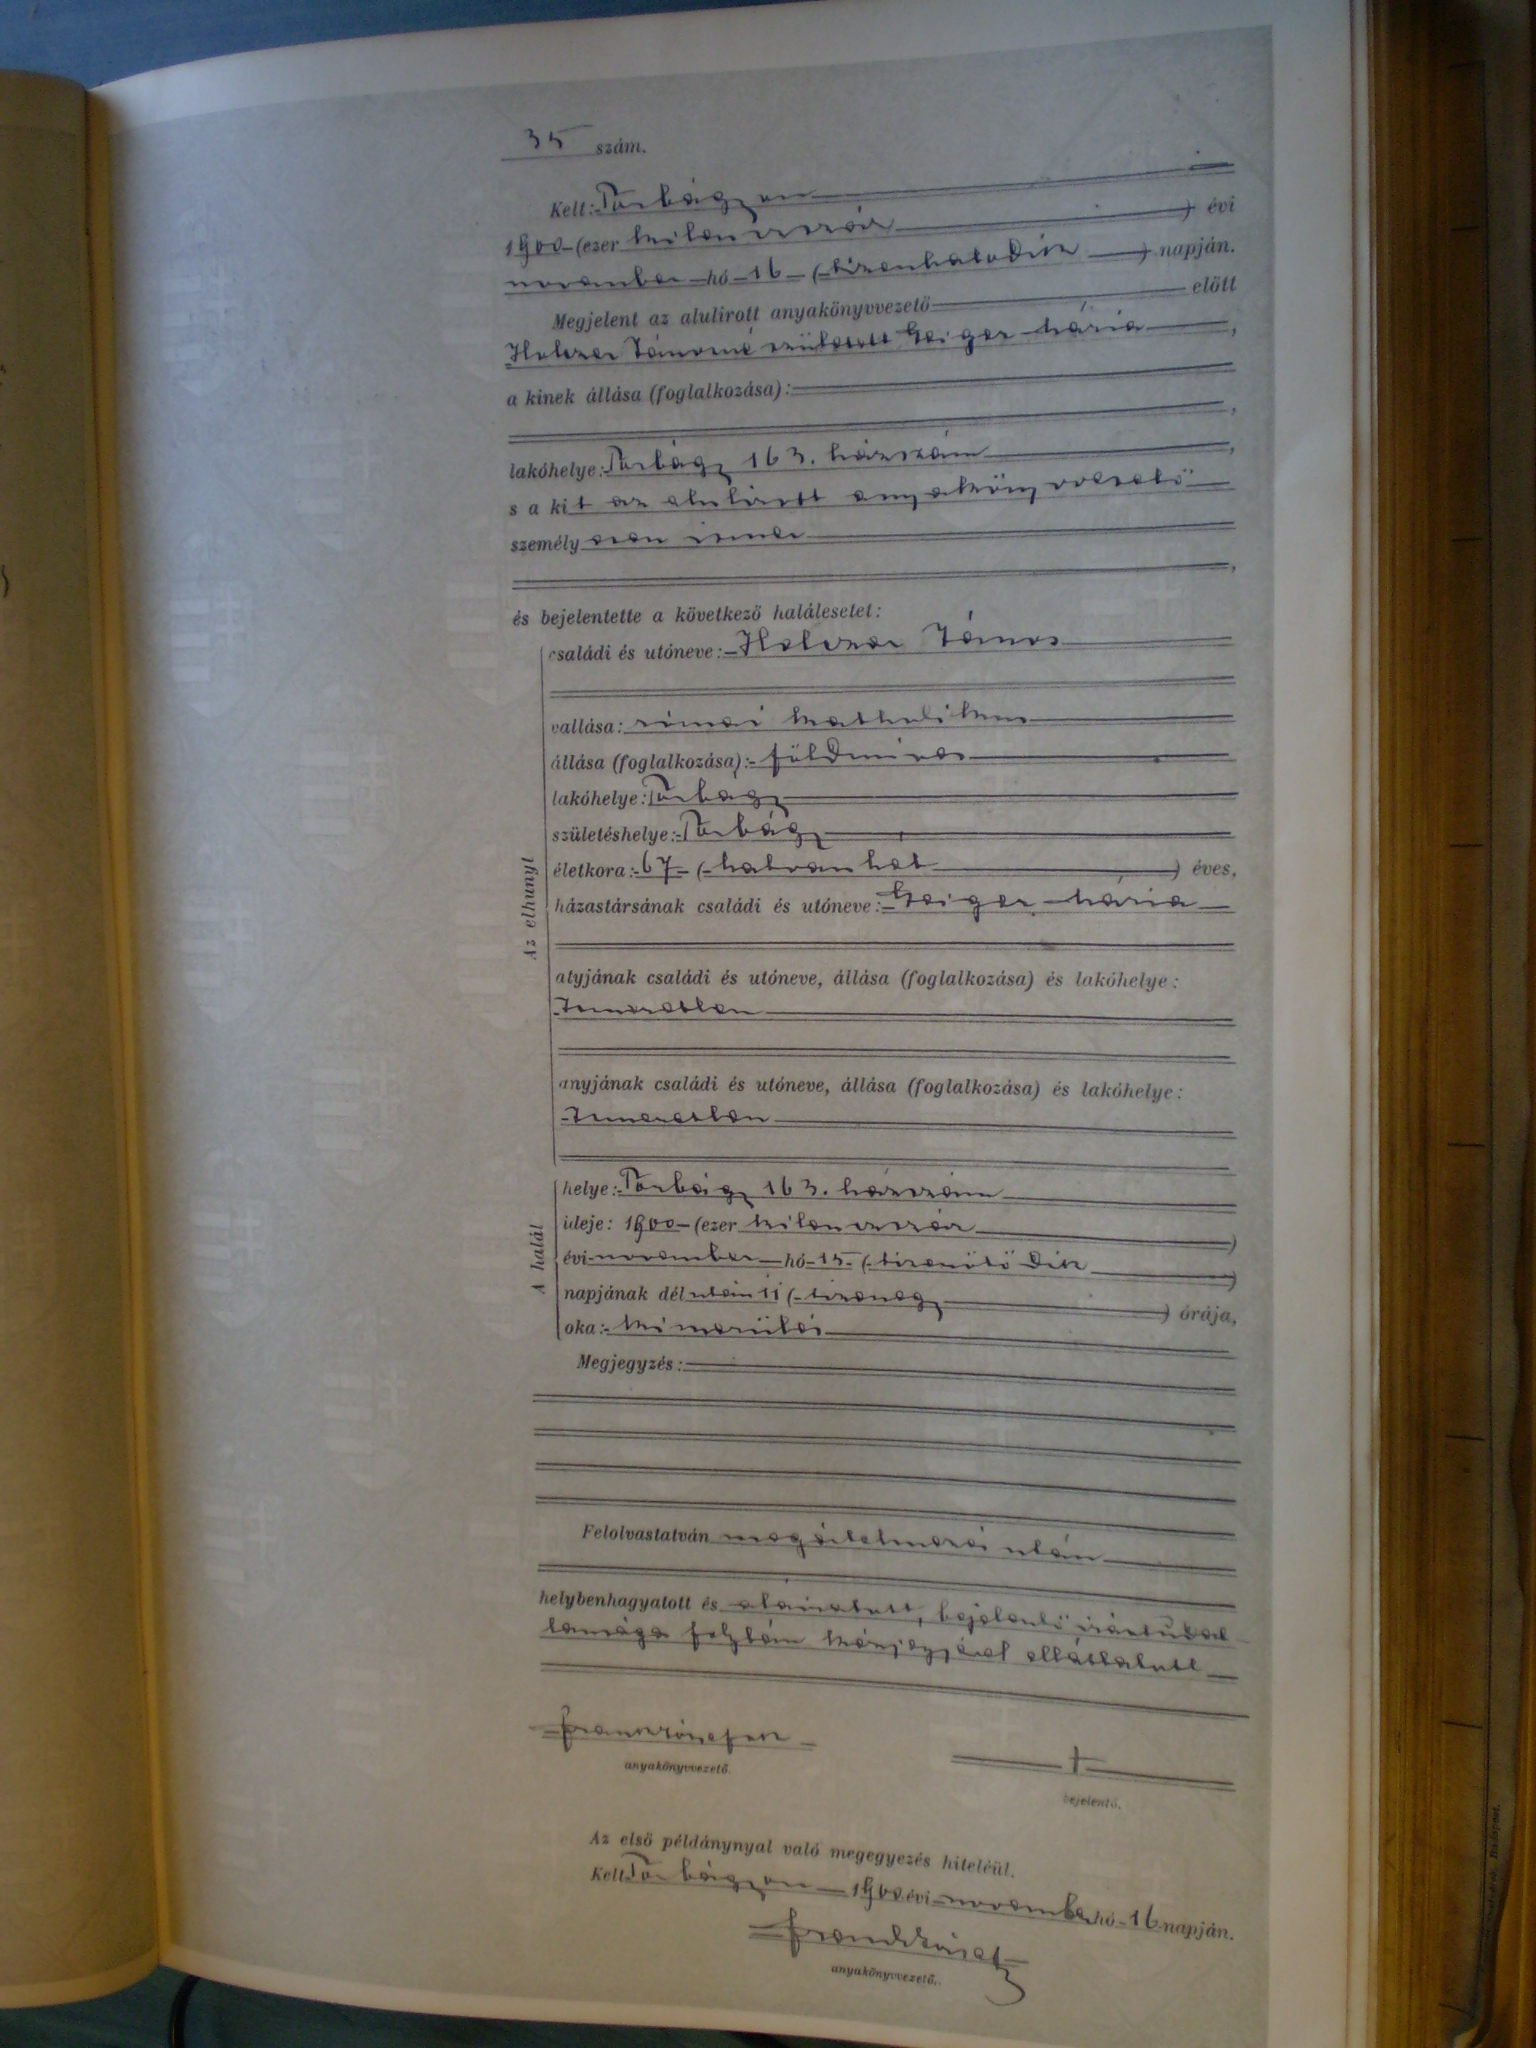 35 szám.
Kelt: Torbágyon
1900 (ezer kilenczszáz) évi
november hó 16 (tizenhatodik) napján.
Megjelent az alulirott anyakönyvvezető előtt
Holczer Jánosné született Geiger Mária,
a kinek állása (foglalkozása):
lakóhelye: Torbágy 163. házszám,
s a kit az alulirott anyakönyvvezető
személyesen ismer,
és bejelentette a következő halálesetet:
Az elhunyt
családi és utóneve: Holczer János
vallása: római katholikus
állása (foglalkozása): földmives
lakóhelye: Torbágy
születéshelye: Torbágy
életkora: 67 (hatvanhét) éves,
házastársának családi és utóneve: Geiger Mária
atyjának családi és utóneve, állása (foglalkozása) és lakóhelye:
Ismeretlen
anyjának családi és utóneve, állása (foglalkozása) és lakóhelye:
Ismeretlen
A halál
helye: Torbágy 163. házszám
ideje: 1900 (ezer kilenczszáz)
évi november hó 15 (tizenötödik)
napjának délután 11 (tizenegy) órája,
oka: kimerülés
Megjegyzés:
Felolvastatván megértelmezés után
helybenhagyatott és aláiratott, bejelentő irástudat
lansága folytán kézjegyével elláttatott
anyakönyvvezető.
+
bejelentő.
Az első példánynyal való megegyezés hiteléül.
Kelt Torbágyon 1900 évi november hó 16 napján.
anyakönyvvezető.